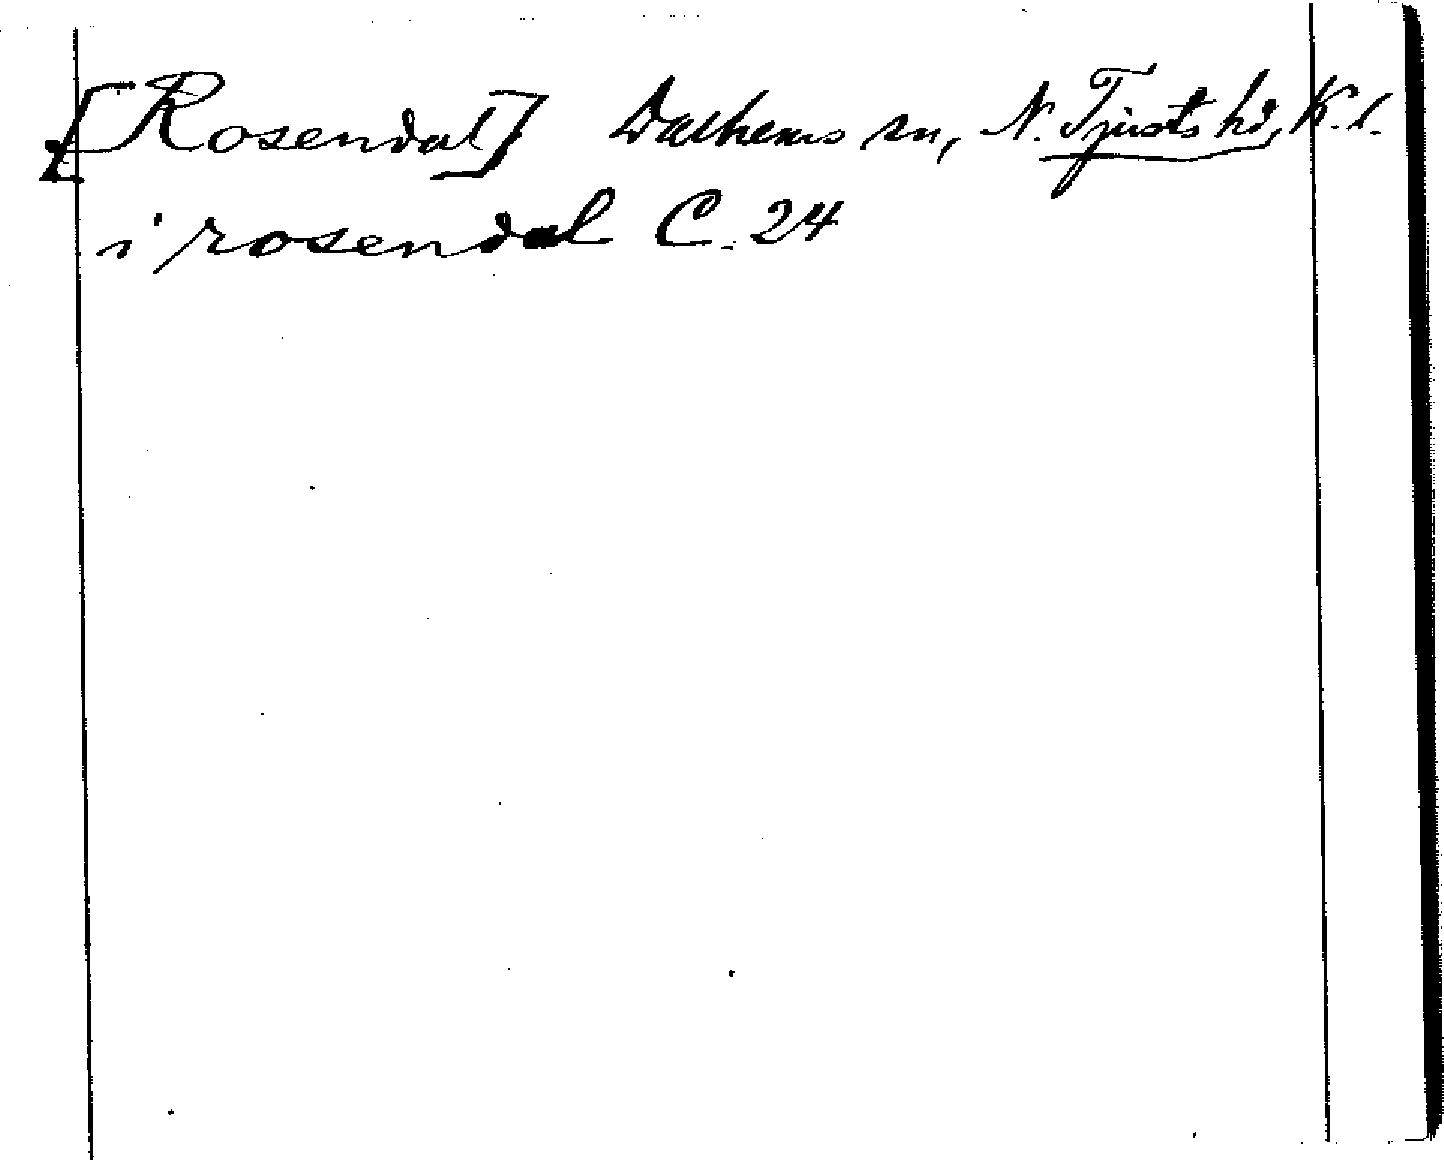 [Rosendal] Dalhems sn, N. Tjusts hd, K. l.
i rosendal C. 24